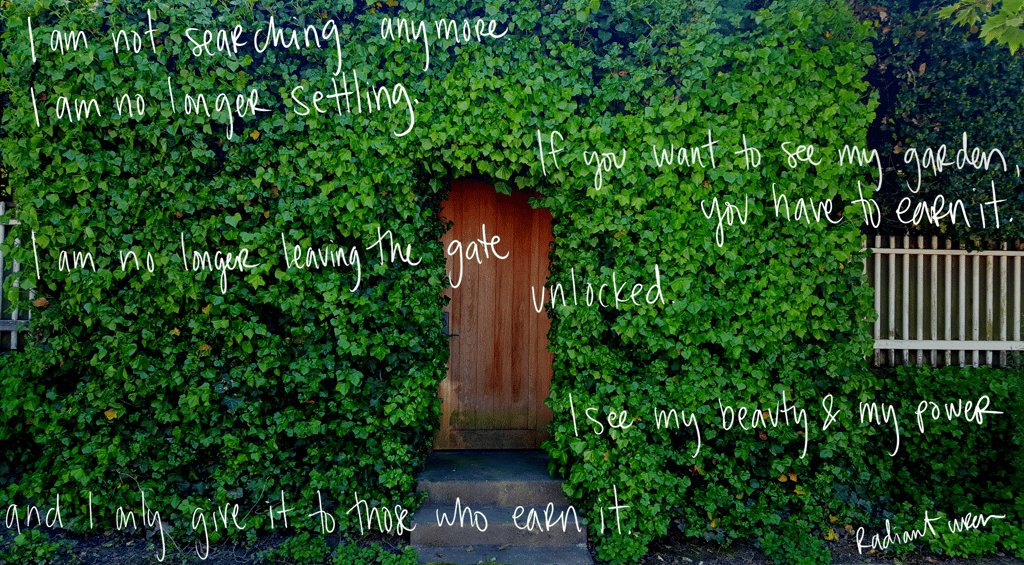 I am not searching anymore
I am no longer settling.
If you want to see my garden,
you have to earn it.
I am no longer leaving the gate
unlocked.
I see my beauty & my power
and I only give it to those who earn it.
Radiant wren